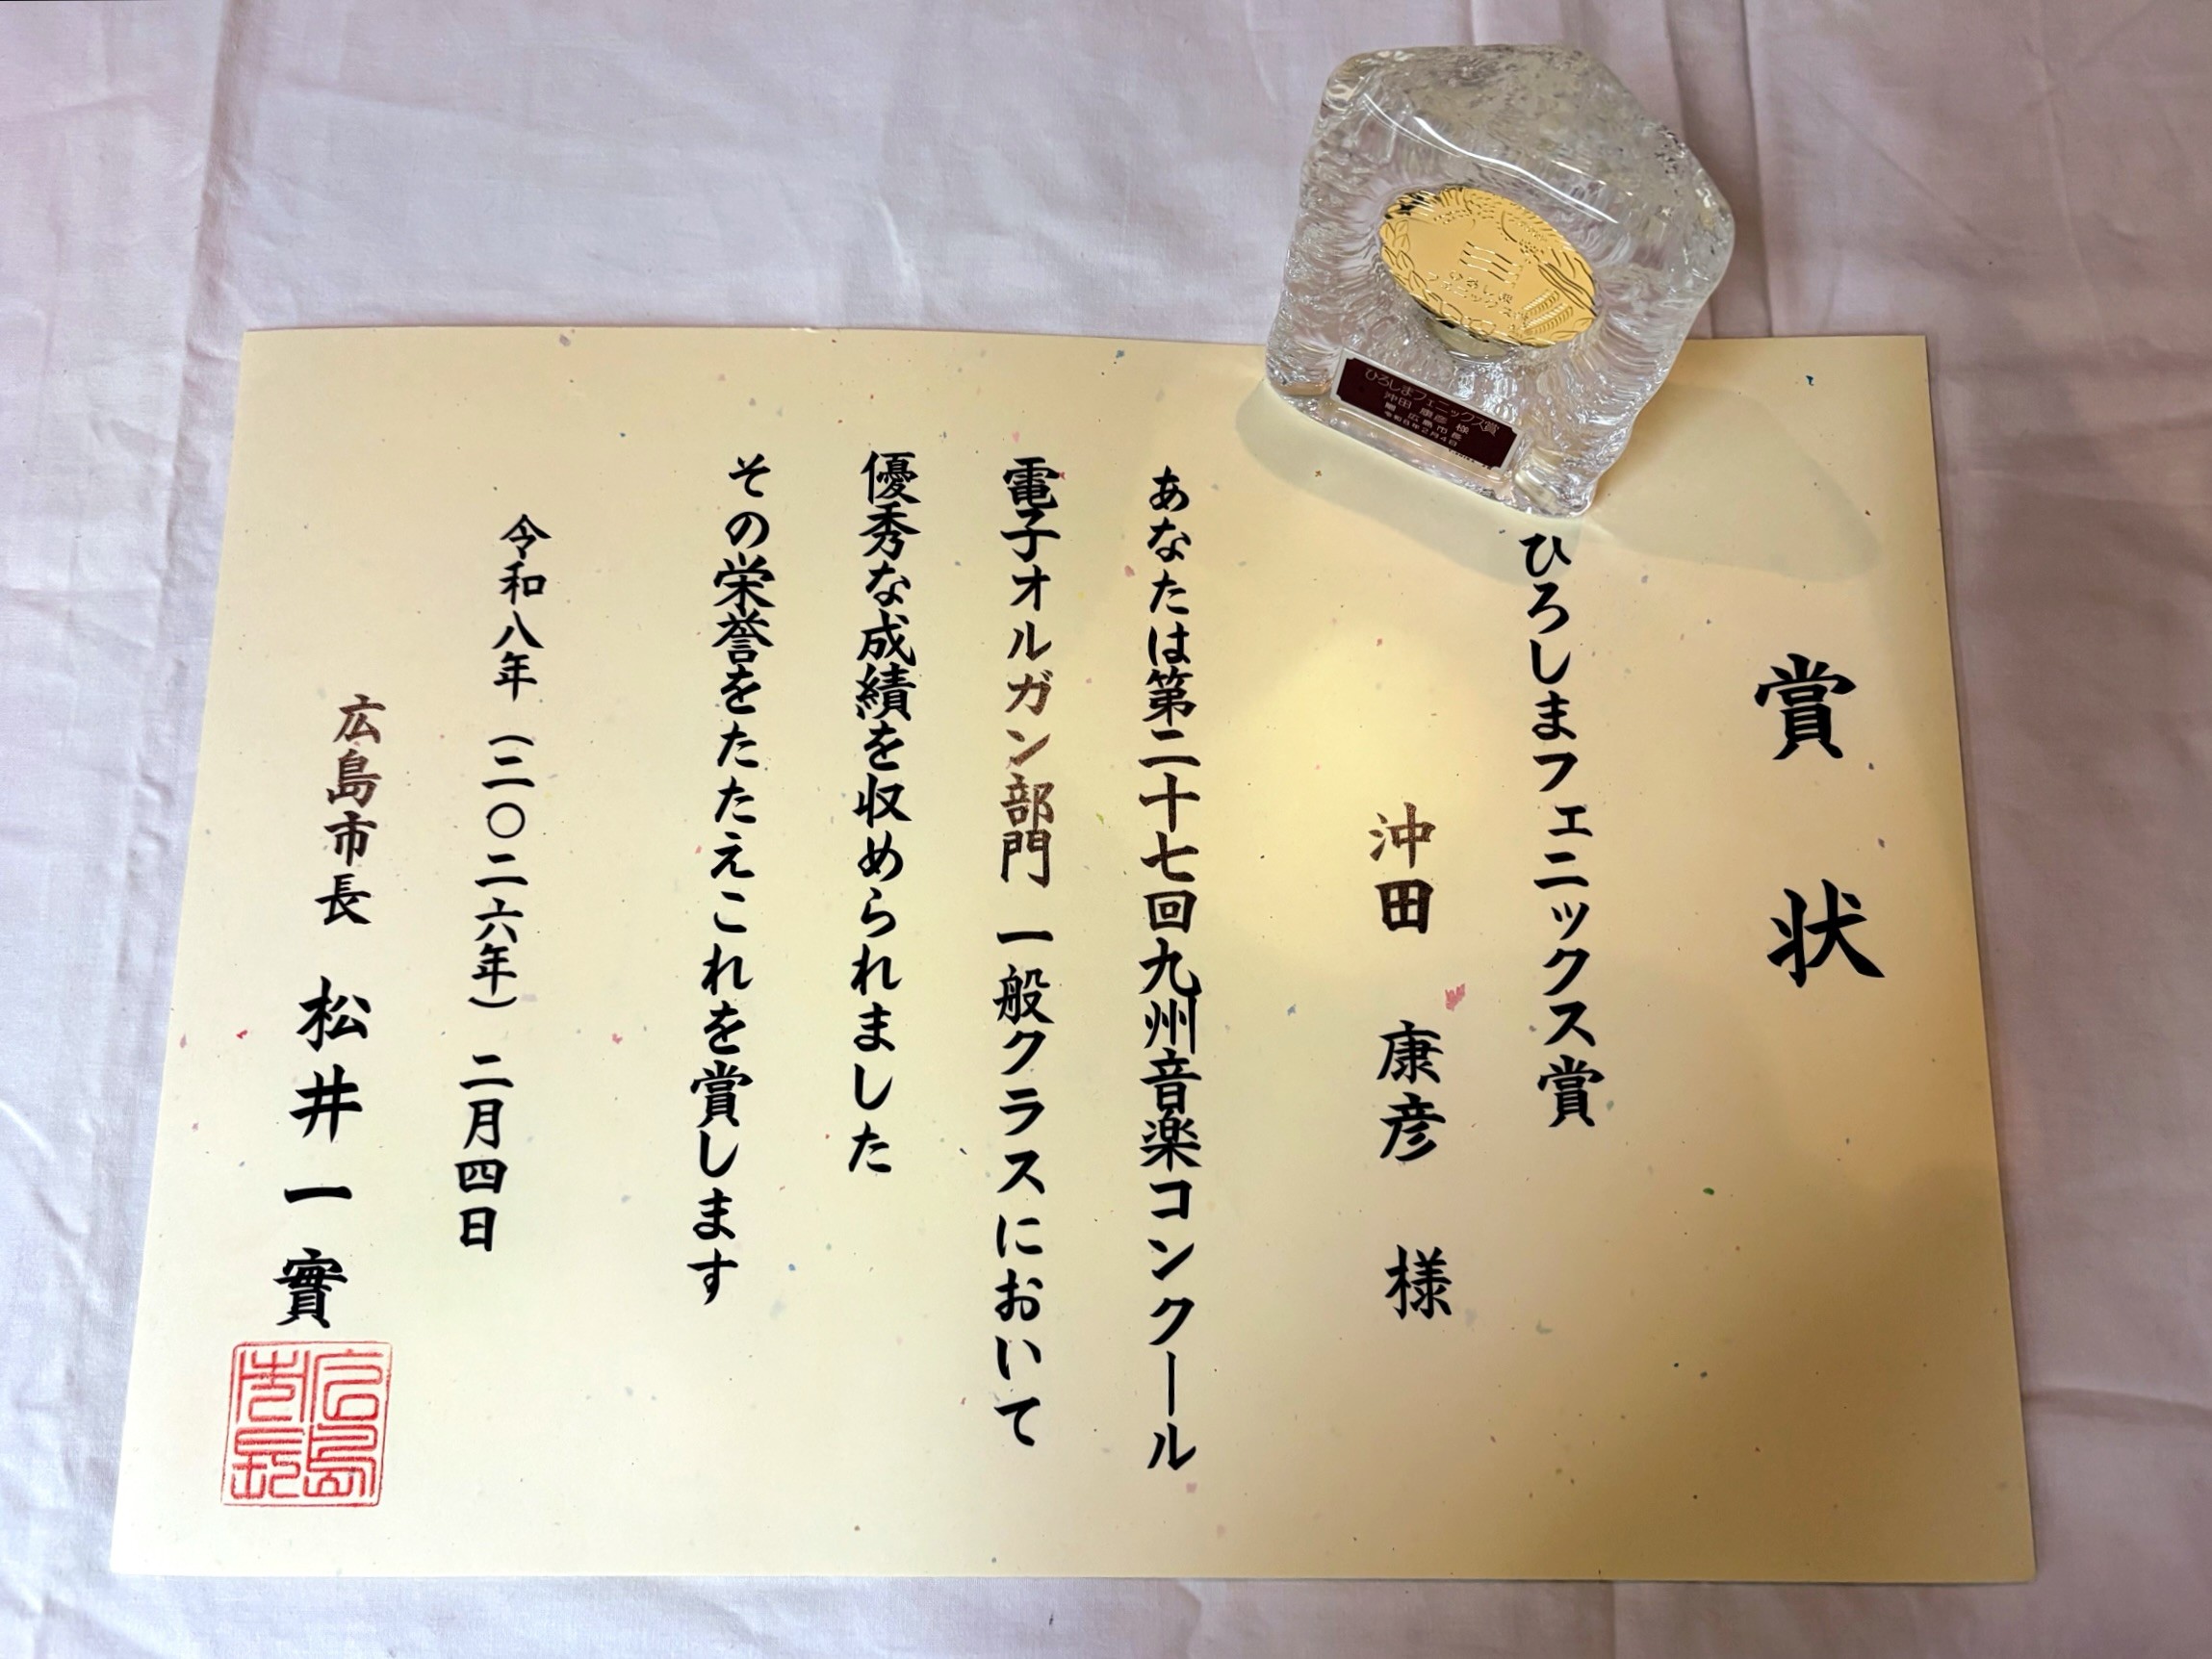 賞状
ひろしまフェニックス賞
沖田 康彦 様
あなたは第二十七回九州音楽コンクール
電子オルガン部門 一般クラスにおいて
優秀な成績を収められました
その栄誉をたたえこれを賞します
令和八年(二〇二六年)二月四日
広島市長 松井一實
広島市長
ひろしま
フェニックス賞
ひろしまフェニックス賞
沖田 康彦 様
贈 広島市長
令和8年2月4日